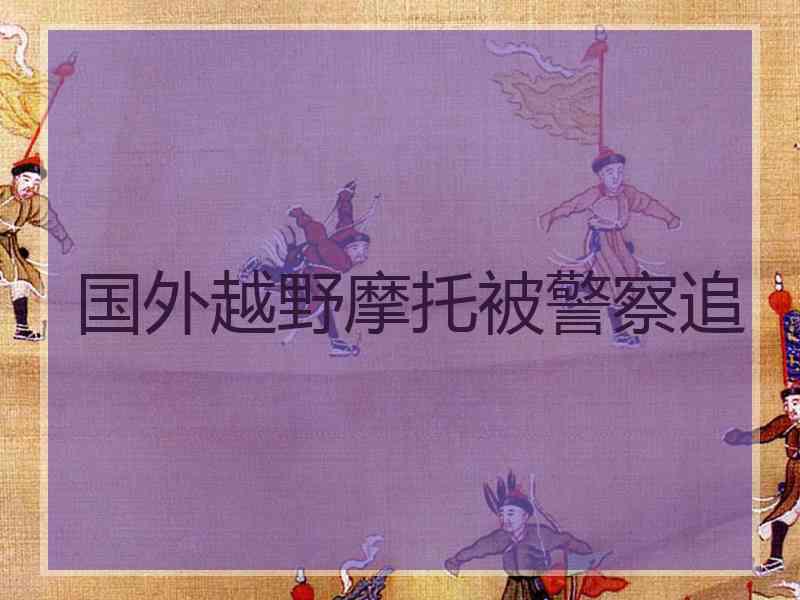 国外越野摩托被警察追